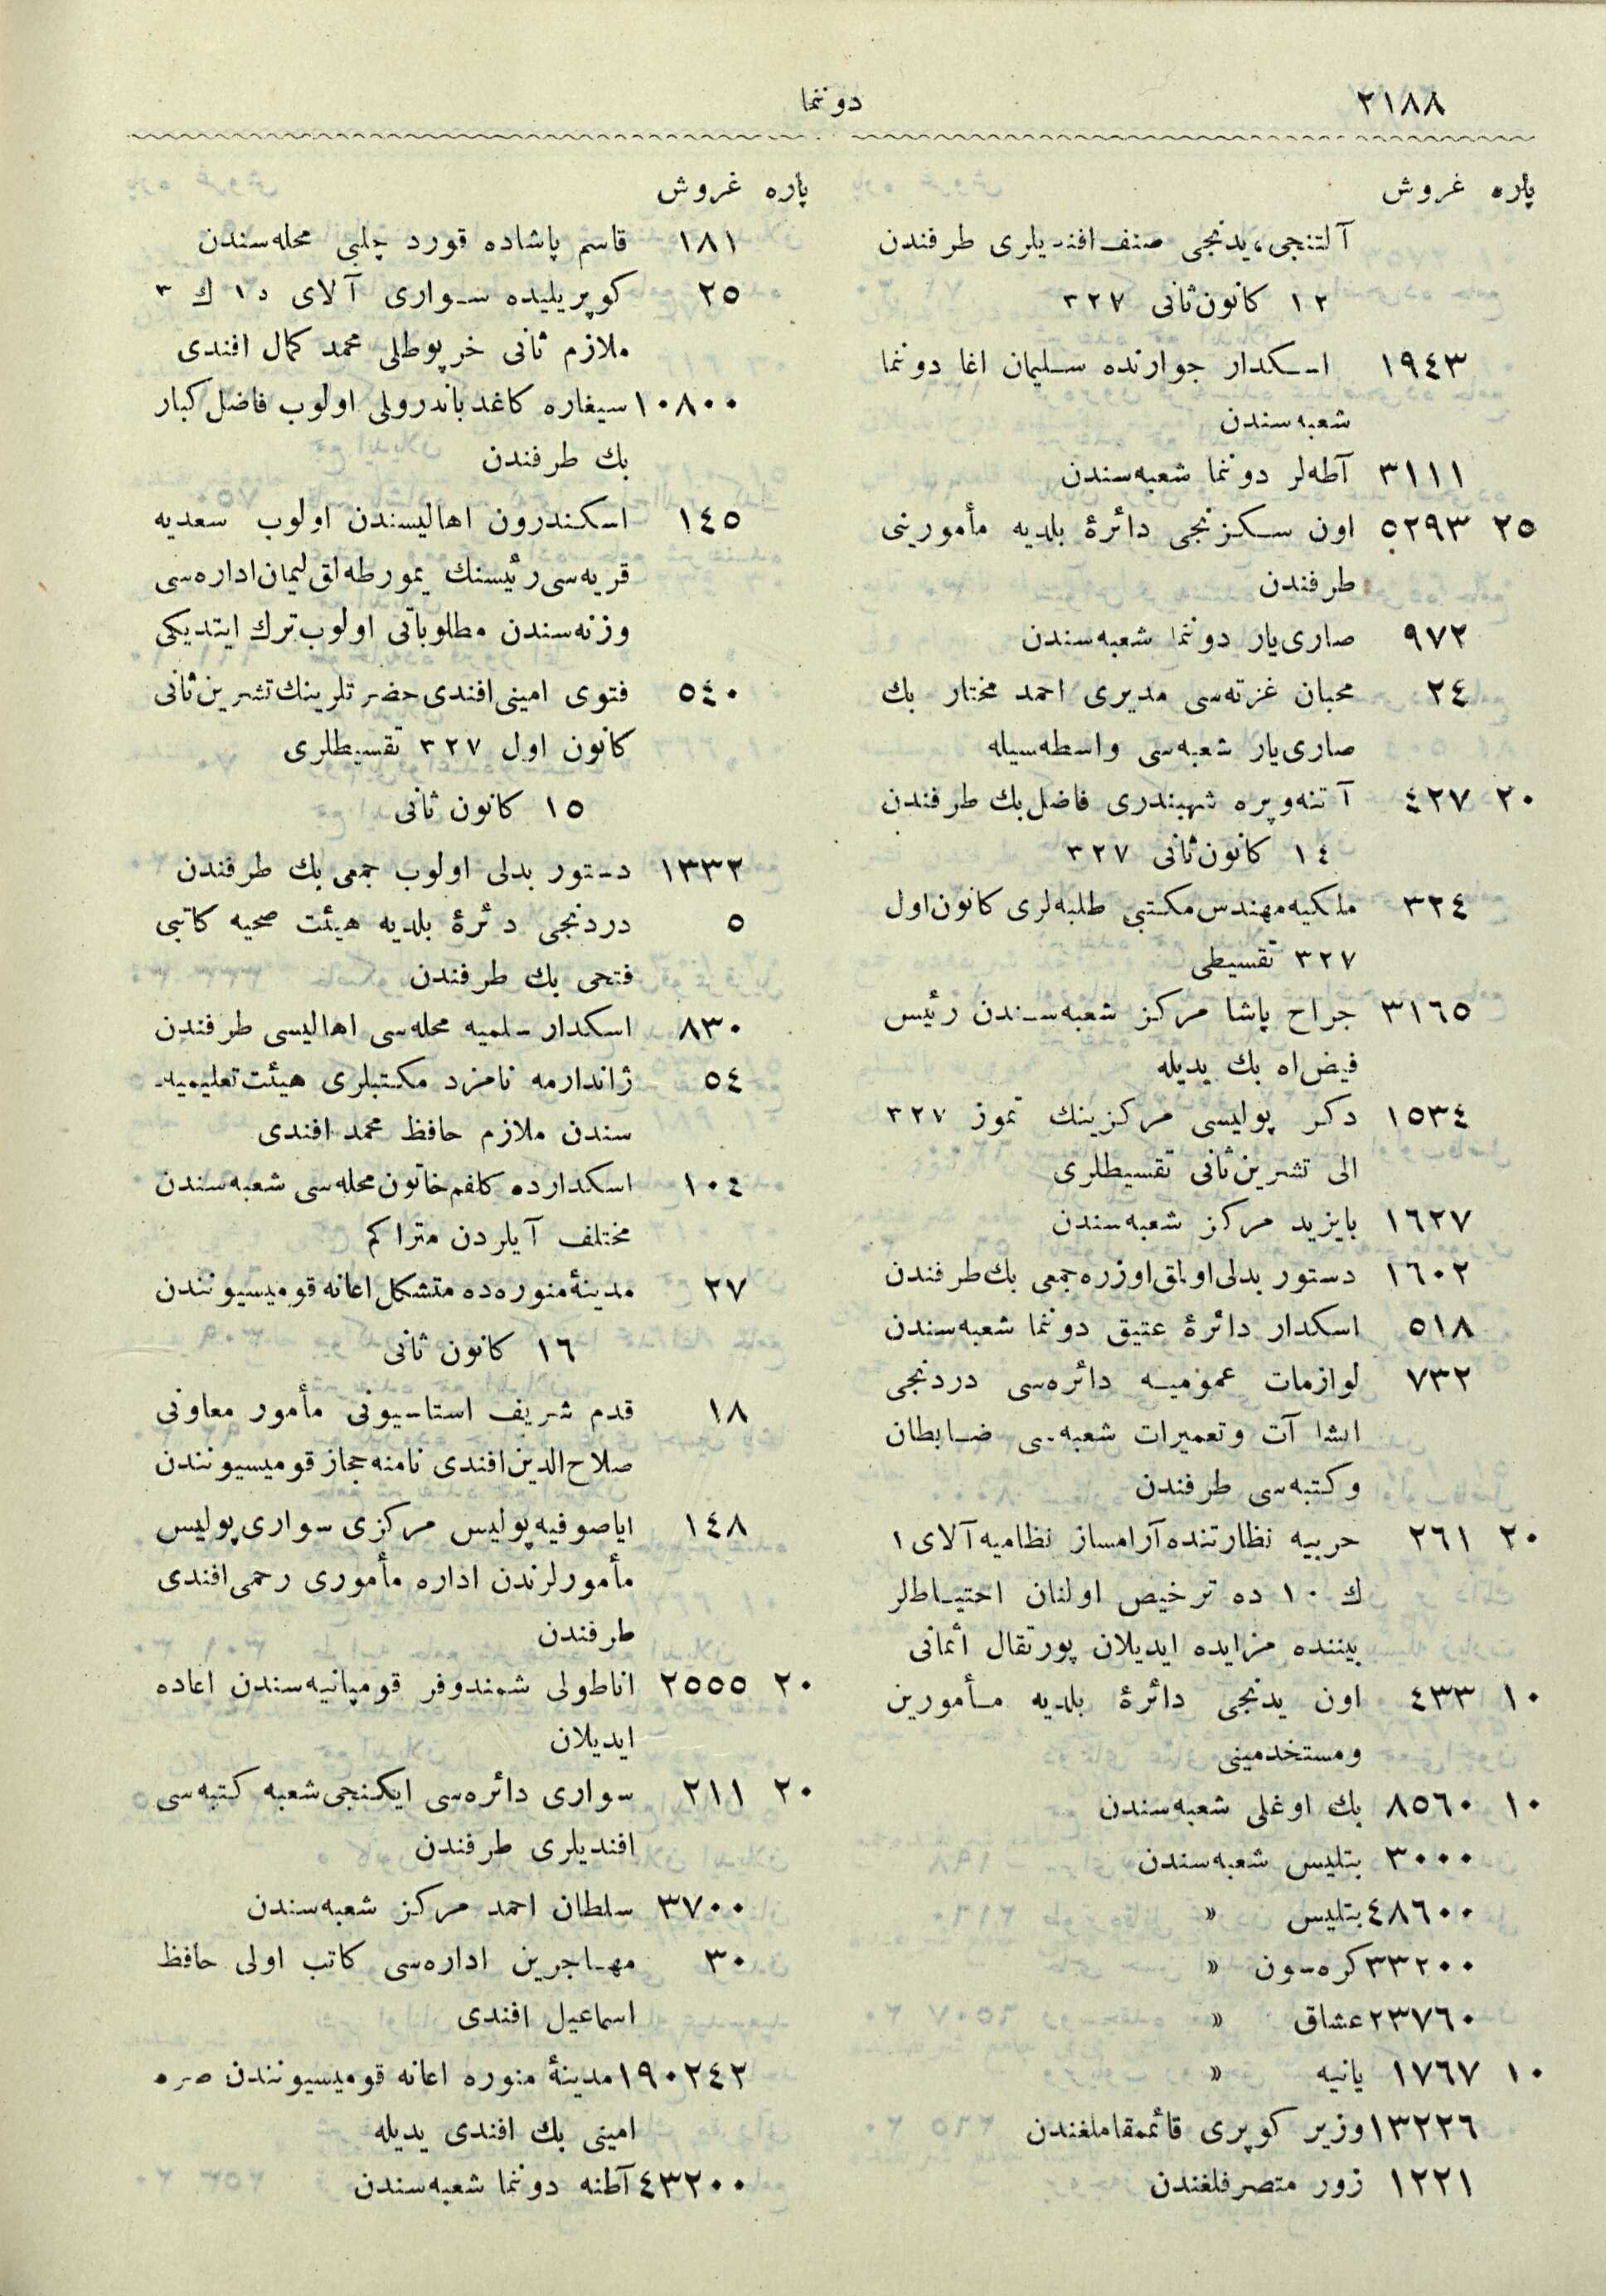 ٢١٨٨ دوننما
پاره غروش
آلتنجی، یدنجی صنف افندیلری طرفندن
١٢ كانون ثانی ٣٢٧
١٩٤٣ اسكدار جوارنده سلیمان اغا دوننما
شعبه سندن
٣١١١ آطه لر دوننما شعبه سندن
٢٥ ٥٢٩٣ اون سكزنجی دائرۀ بلدیه مأمورینی
طرفندن
٩٧٢ صاری یار دوننما شعبه سندن
٢٤ محبان غزته سی مدیری احمد مختار بك
صاری یار شعبه سی واسطه سیله
٢٠ ٤٢٧ آتنه و پره شهبندری فاضل بك طرفندن
١٤ كانون ثانی ٣٢٧
٣٢٤ ملكیه مهندس مكتبی طلبه لری كانون اول
٣٢٧ تقسیطی
٣١٦٥ جراح پاشا مركز شعبه سندن رئیس
فیض اه بك یدیله
١٥٣٤ دكر پولیسی مركزینك تموز ٣٢٧
الی تشرین ثانی تقسیطلری
١٦٢٧ بایزید مركز شعبه سندن
١٦٠٢ دستور بدلی اولمق اوزره جمعی بك طرفندن
٥١٨ اسكدار دائرۀ عتیق دوننما شعبه سندن
٧٣٢ لوازمات عمومیه دائره سی دردنجی
انشاآت و تعمیرات شعبه سی ضابطان
و كتبه سی طرفندن
٢٠ ٢٦١ حربیه نظارتنده آرامساز نظامیه آلای ١
ك ١٠ ده ترخیص اولنان احتیاطلر
بیننده مزایده ایدیلان پورتقال أثمانی
١٠ ٤٣٣ اون یدنجی دائرۀ بلدیه مأمورین
و مستخدمینی
١٠ ٨٥٦٠ بك اوغلی شعبه سندن
٣٠٠٠ بتلیس شعبه سندن
٤٨٦٠٠ بتلیس »
٣٣٢٠٠ كره سون »
٢٣٧٦٠ عشاق »
١٠ ١٧٦٧ یانیه »
١٣٢٢٦ وزیر كوپری قائممقاملغندن
١٢٢١ زور متصرفلغندن
پاره غروش
١٨١ قاسم پاشاده قورد چلبی محله سندن
٢٥ كوپریلیده سواری آلای ١٥ ك ٣
ملازم ثانی خرپوطلی محمد كمال افندی
١٠٨٠٠ سیغاره كاغد باندرولی اولوب فاضل كبار
بك طرفندن
١٤٥ اسكندرون اهالیسندن اولوب سعدیه
قریه سی رئیسنك یمورطه لق لیمان اداره سی
وزنه سندن مطلوباتی اولوب ترك ایتدیكی
٥٤٠ فتوی امینی افندی حضرتلرینك تشرین ثانی
كانون اول ٣٢٧ تقسیطلری
١٥ كانون ثانی
١٣٣٢ دستور بدلی اولوب جمعی بك طرفندن
٥ دردنجی دئرۀ بلدیه هیئت صحیه كاتبی
فتحی بك طرفندن
٨٣٠ اسكدار سلمیه محله سی اهالیسی طرفندن
٥٤ ژاندارمه نامزد مكتبلری هیئت تعلیمیه
سندن ملازم حافظ محمد افندی
١٠٤ اسكدارده كلفم خاتون محله سی شعبه سندن
مختلف آیلردن متراكم
٢٧ مدینۀ منوره ده متشكل اعانه قومیسیونندن
١٦ كانون ثانی
١٨ قدم شریف استاسیونی مأمور معاونی
صلاح الدین افندی نامنه حجاز قومیسیونندن
١٤٨ ایاصوفیه پولیس مركزی سواری پولیس
مأمورلرندن اداره مأموری رحمی افندی
طرفندن
٢٠ ٢٥٥٥ اناطولی شمندوفر قومپانیه سندن اعاده
ایدیلان
٢٠ ٢١١ سواری دائره سی ایكنجی شعبه كتبه سی
افندیلری طرفندن
٣٧٠٠ سلطان احمد مركز شعبه سندن
٣٠ مهاجرین اداره سی كاتب اولی حافظ
اسماعیل افندی
١٩٠٢٤٢ مدینۀ منوره اعانه قومیسیونندن صره
امینی بك افندی یدیله
٤٣٢٠٠ آطنه دوننما شعبه سندن